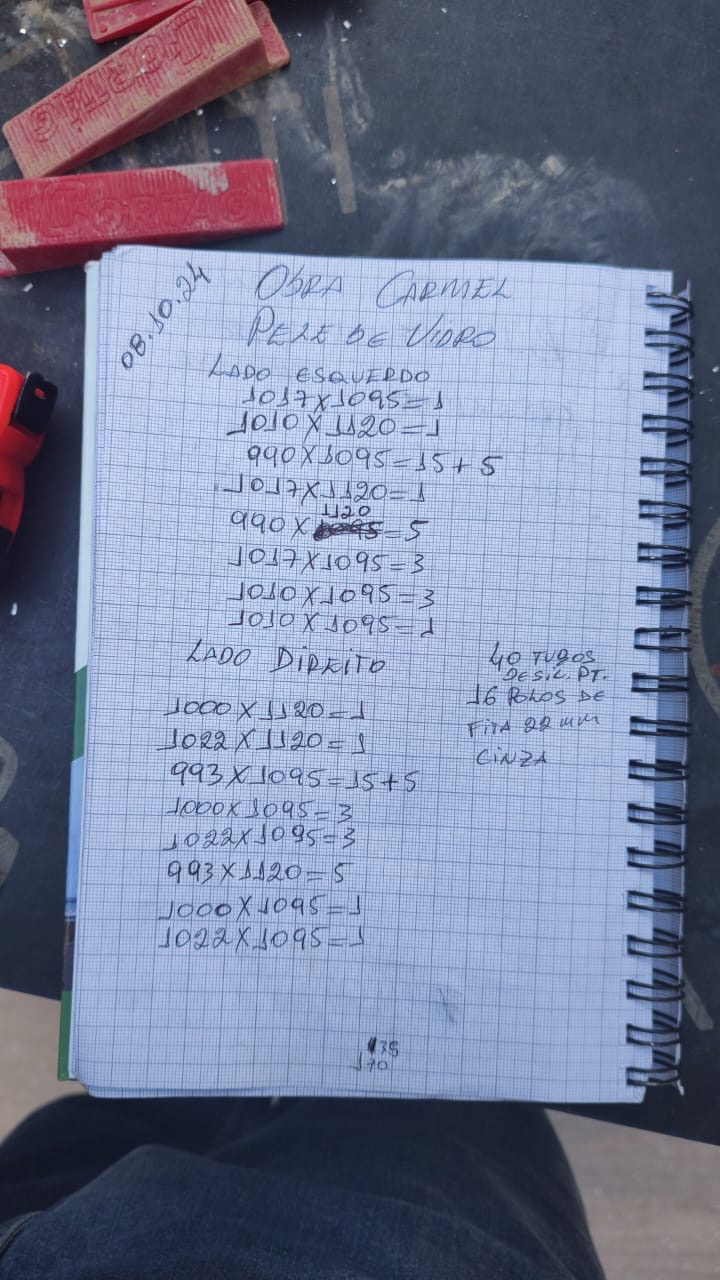 08.10.24
OBRA CARMEL
PELE DE VIDRO
LADO ESQUERDO
1017X1095=1
1010X1120=1
990X1095=15+5
1017X1120=1
990X1120=5
1017X1095=3
1010X1095=3
1010X1095=1
LADO DIREITO
1000X1120=1
1022X1120=1
993X1095=15+5
1000X1095=3
1022X1095=3
993X1120=5
1000X1095=1
1022X1095=1
40 TUBOS
DE SIL. PT.
16 ROLOS DE
FITA 22 MM
CINZA
170